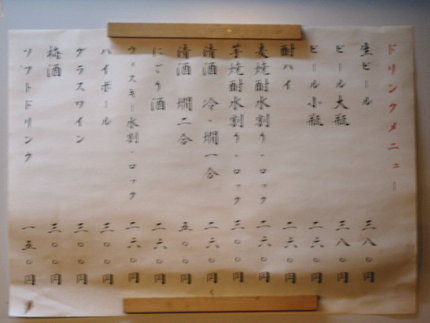 ドリンクメニュー
生ビール 三八〇円
ビール大瓶 三八〇円
ビール小瓶 二六〇円
酎ハイ 二六〇円
麦焼酎水割り・ロック 二六〇円
芋焼酎水割り・ロック 三〇〇円
清酒 冷・燗一合 二六〇円
清酒 燗二合 五〇〇円
にごり酒 二六〇円
ウィスキー水割・ロック 二六〇円
ハイボール 三〇〇円
グラスワイン 三〇〇円
梅酒 三〇〇円
ソフトドリンク 一五〇円